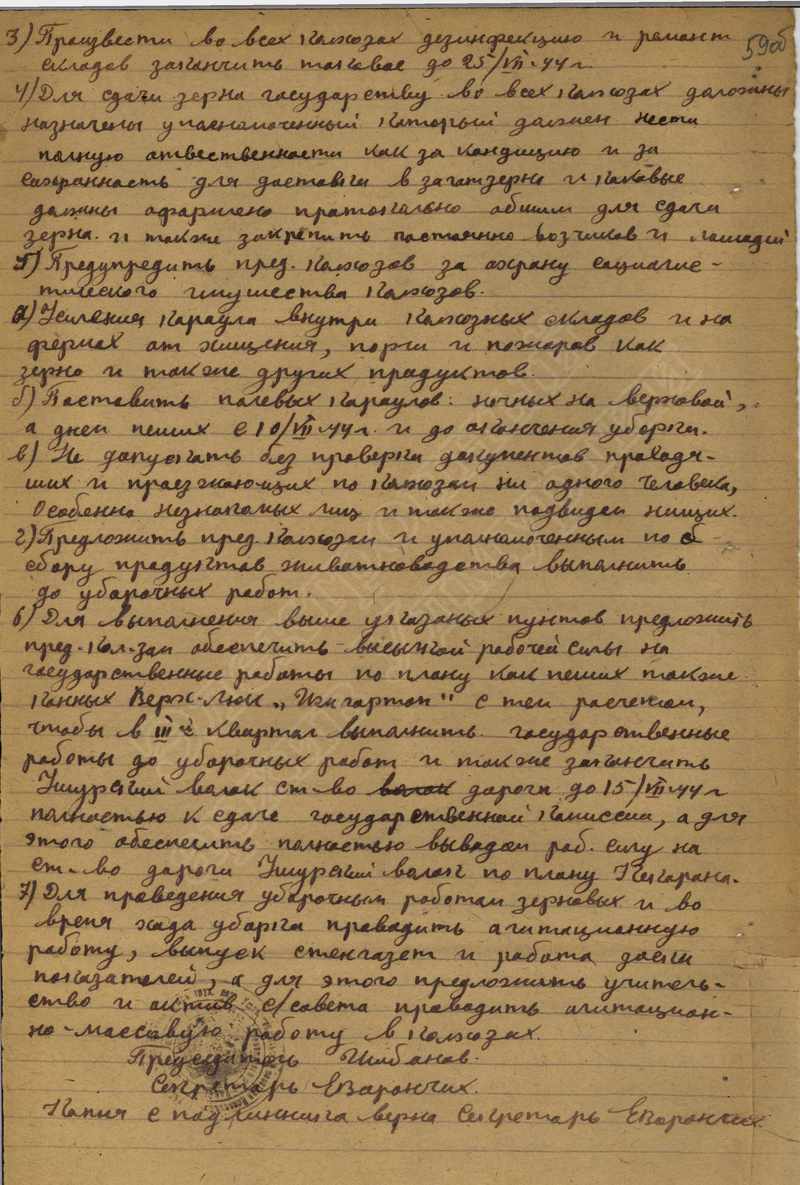 59об
3) Произвести во всех колхозах дезинфекцию и ремонт
складов закончить таковое до 25/VII-44 г.
4) Для сдачи зерна государству во всех колхозах должны
назначены уполномоченный который должен нести
полную отвественности как за кондицию и за
сохранность для доставки в заготзерно и таковые
должны оформлено протокольно общим для сдачи
зерна. и также закрепить постоянно возчиков и лошадей
5) Предупредить пред. колхозов за охрану социалис-
тического имущества колхозов.
а) Усиления караула внутри колхозных складов и на
фермах от хищения, порчи и пожаров как
зерно и также других продуктов.
б) Поставить полевых караулов: ночных на верховой,
а днем пеших с 10/VII-44 г. и до окончения уборки.
в) Не допускать без проверки документов проходя-
щих и проезжающих по колхозам ни одного человека,
Особенно незнакомых лиц и также подвидом нищих.
г) Предложить пред. колхозам и уполномоченным по
сбору продуктов животноводства выполнить
до уборочных работ.
6) Для выполнения выше указаных пунктов предложить
пред. кол-зам обеспечить высылкой рабочей силы на
государственные работы по плану как пеших также
конных Верх-Люк "Ижгортоп" с тем расчетом,
чтобы в III-й квартал выполнить государственные
работы до уборочных работ и также закончить
волок ст-во волок дороги до 15/VII-44 г
полностью к сдаче государственной комиссии, а для
этого обеспечить полностью выводом раб. силу на
ст-во дороги волок по плану
7) Для проведения уборочным работам зерновых и во
время хода уборки проводить агитационную
работу, выпуск стенгазет и работа доски
показателей, а для этого предложить учитель-
ство и актив с/совета проводить агитацион-
но-массовую работу в колхозах.
Председатель Шибанов.
Секретарь ЕВорончих.
Копия с подлинника верна Секретарь ЕВорончих